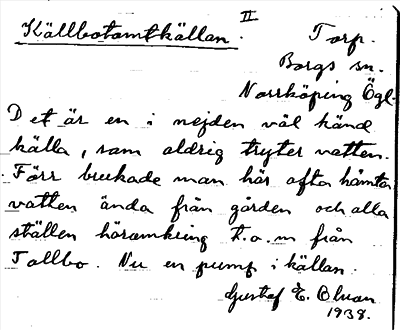 Källbotamtkällan. II Torp.
Borgs sn.
Norrköping Ögl.
Det är en i nejden väl känd
källa, som aldrig tryter vatten.
Förr brukade man här ofta hämta
vatten ända från gården och alla
ställen häromkring t.o.m från
Tallbo. Nu en pump i källan.
Gustaf E. Olson
1938.